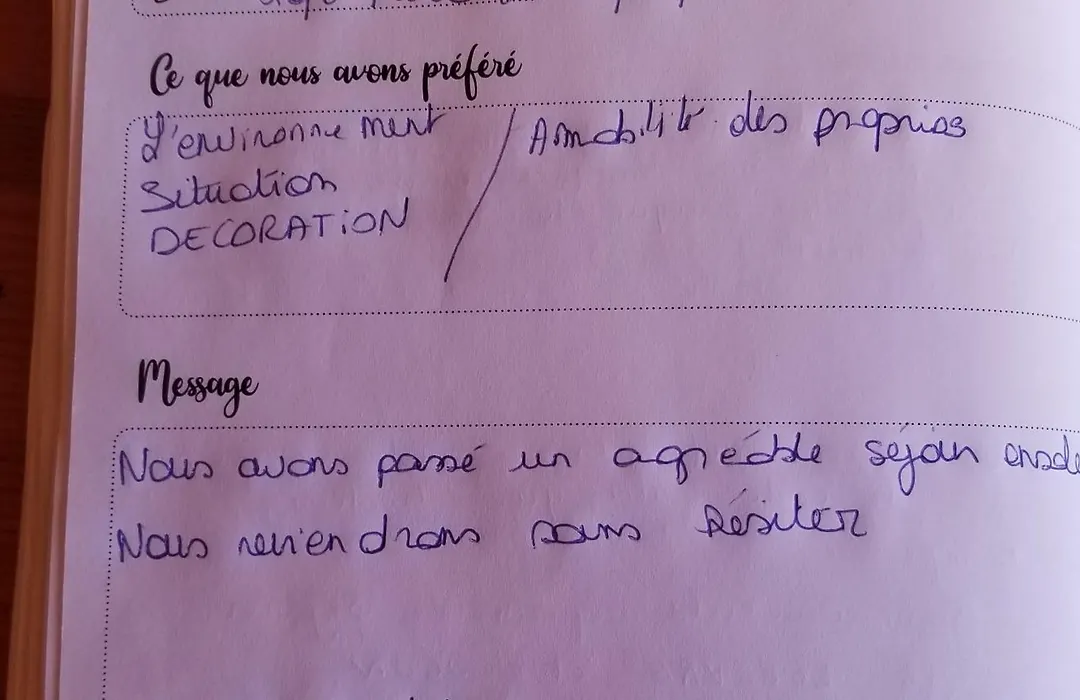 Ce que nous avons préféré
L'environnement / Amabilité des proprios
Situation
DECORATION
Message
Nous avons passé un agréable séjour
Nous reviendrons sans hésiter